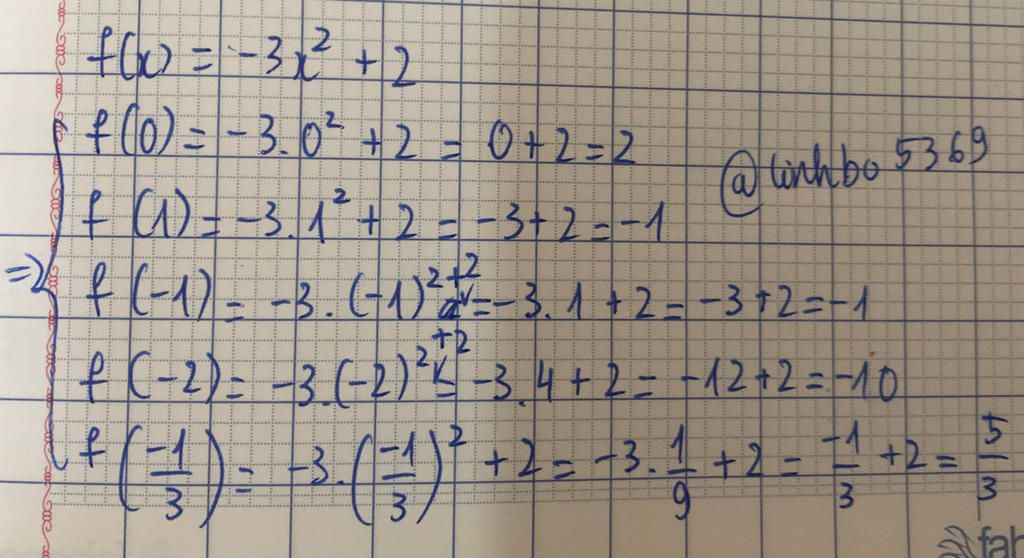 f(x) = -3x² + 2
f(0) = -3.0² + 2 = 0+2=2
@linhbo5369
f(1) = -3.1² + 2 = -3+2=-1
=> f(-1) = -3.(-1)²+2 = -3.1 +2 = -3+2=-1
f(-2) = -3.(-2)²+2 = -3.4+2 = -12+2=-10
f(-1/3) = -3.(-1/3)² +2 = -3.1/9 +2 = -1/3 +2 = 5/3
fah